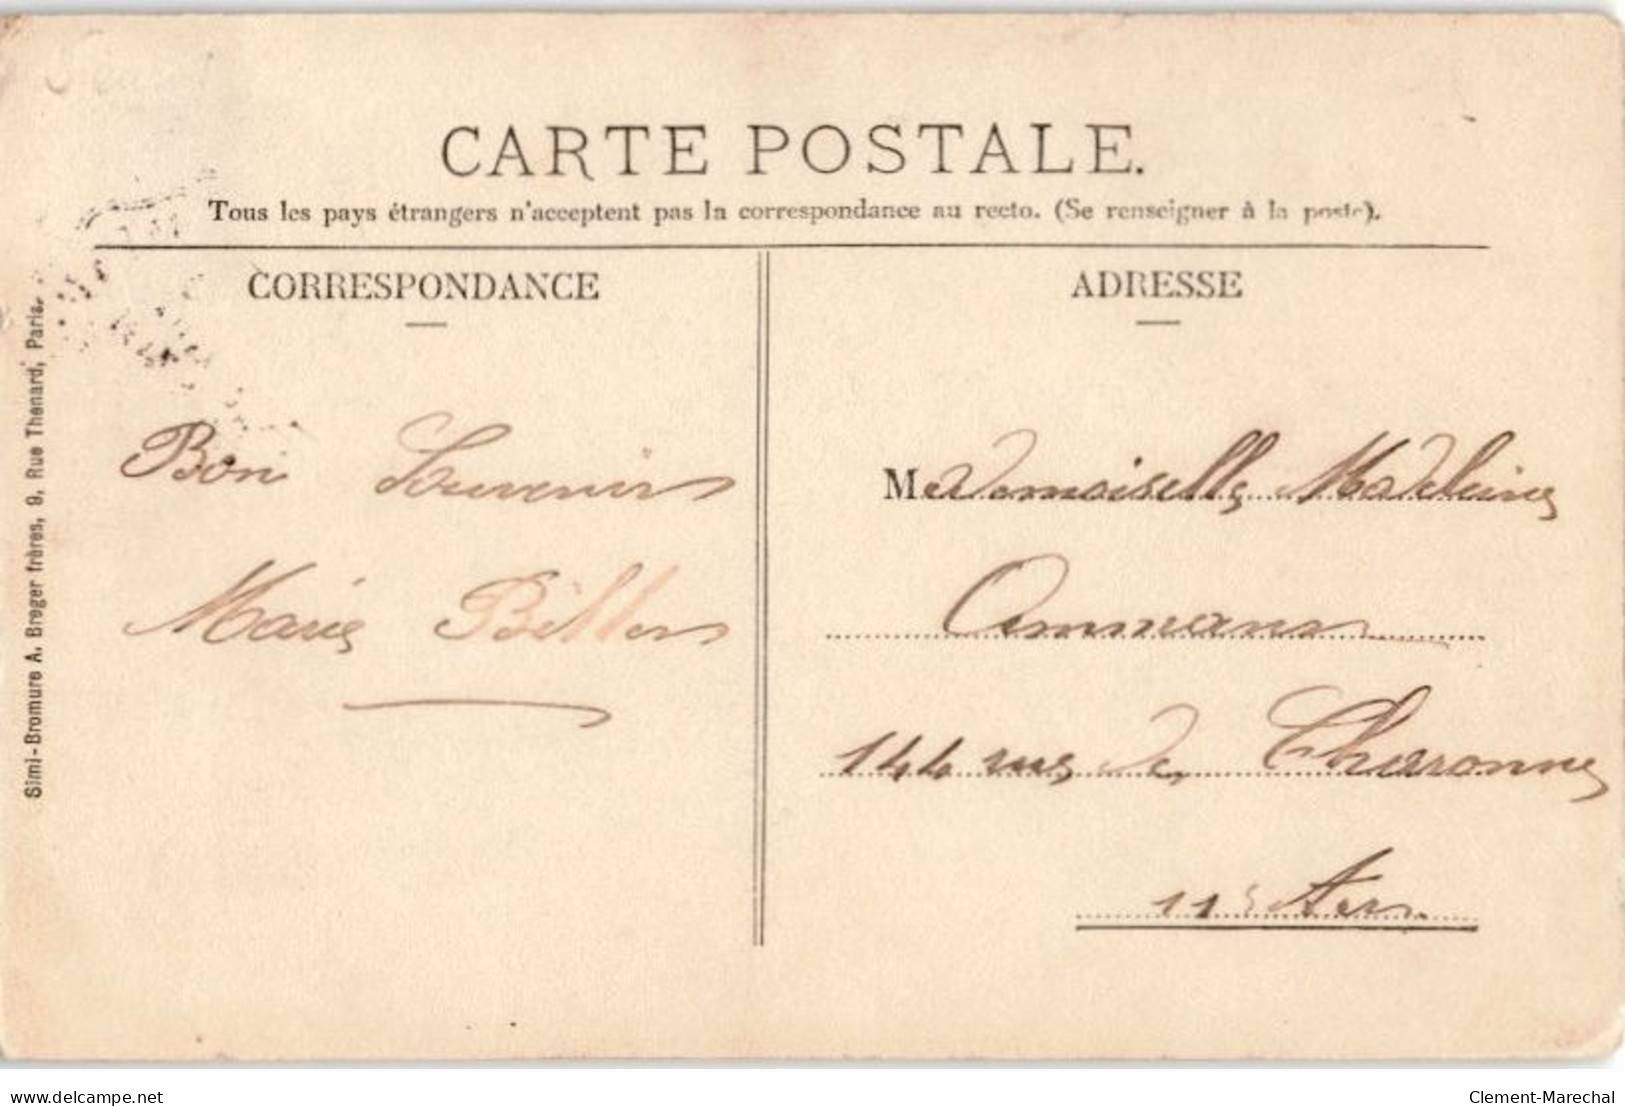 CARTE POSTALE.
Tous les pays étrangers n'acceptent pas la correspondance au recto. (Se renseigner à la poste).
CORRESPONDANCE
Bon Souvenir
Marie
ADRESSE
Mademoiselle Madeleine
144 rue de Charonne
11e Arr.
Simi-Bromure A. Breger frères, 9, Rue Thenard, Paris.
delcampe.net
Clement-Marechal